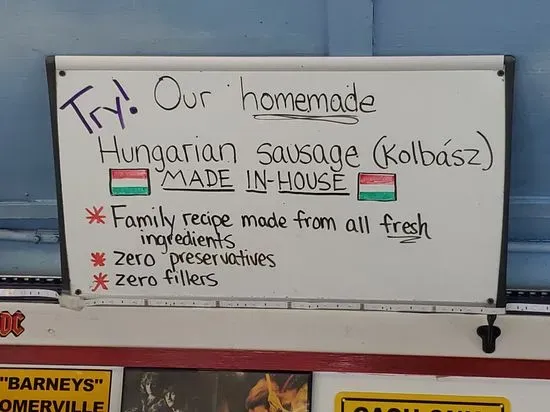 Try! Our homemade
Hungarian sausage (Kolbász)
MADE IN-HOUSE
* Family recipe made from all fresh
ingredients
* zero preservatives
* zero fillers
DC
"BARNEYS"
OMERVILLE